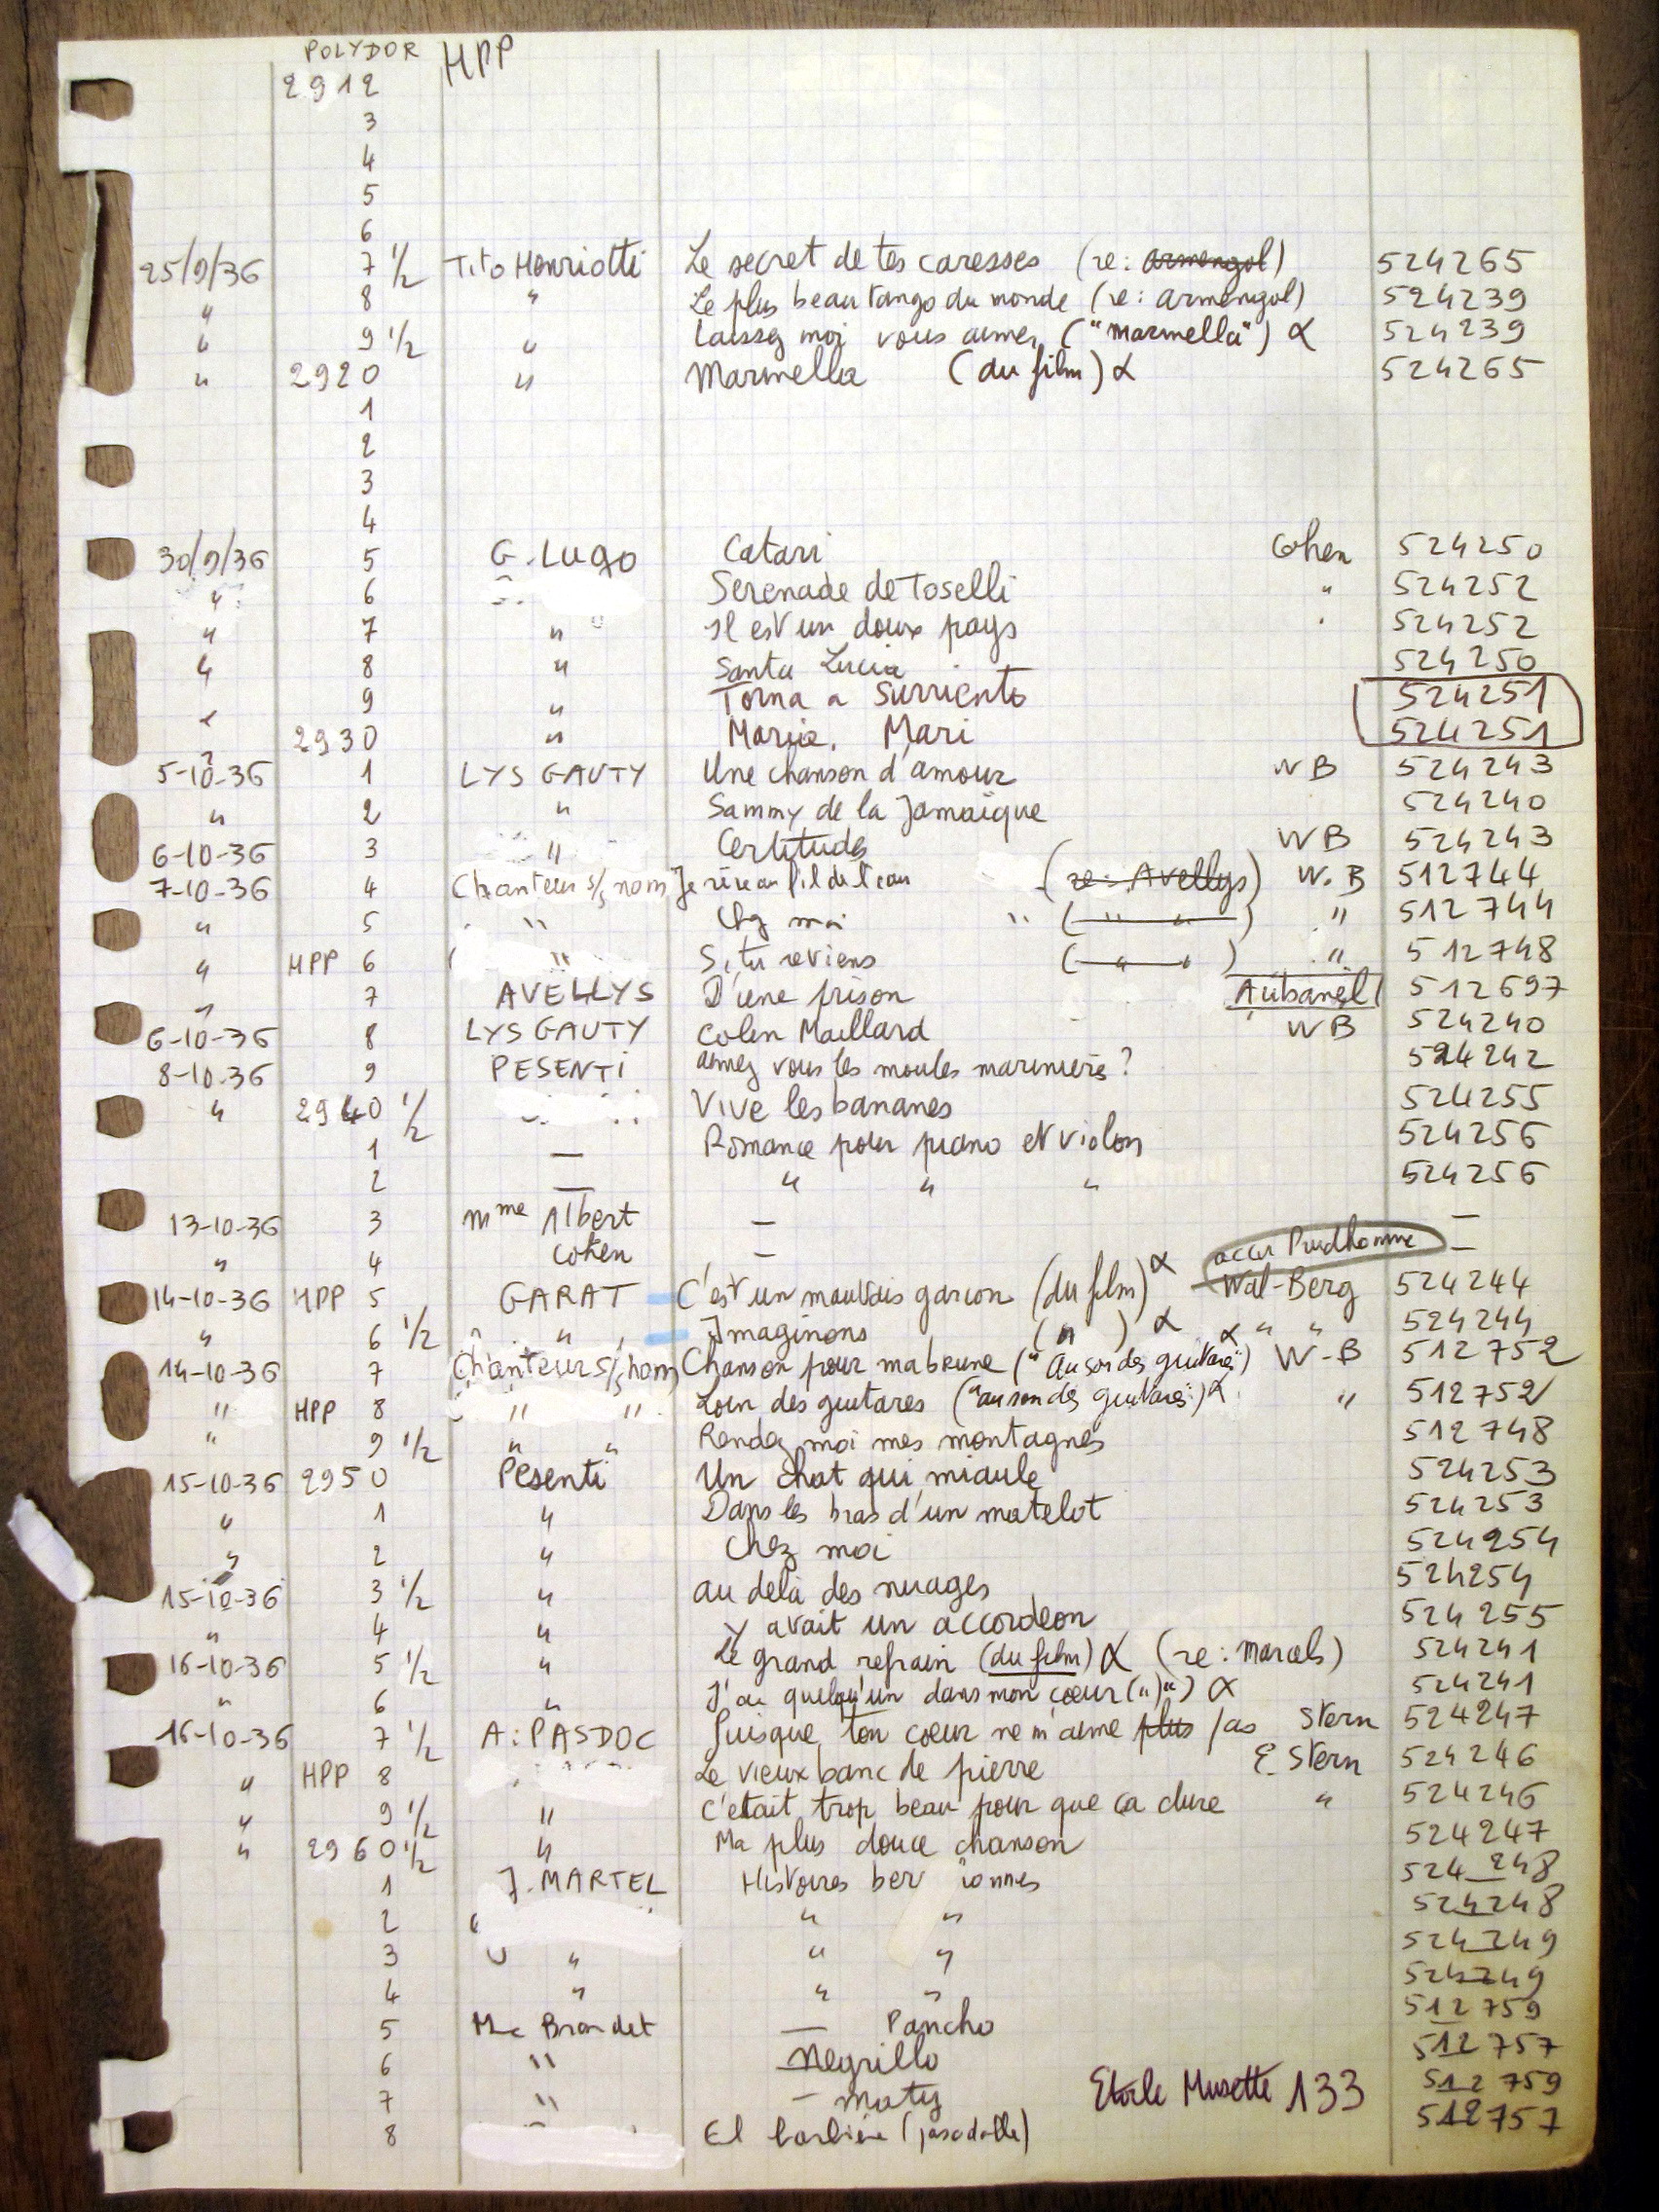 POLYDOR HPP
2912
3
4
5
6
25/9/36 7 1/2 Tito Henriotti Le secret de tes caresses (re: armengol) 524265
" 8 " Le plus beau tango du monde (re: armengol) 524239
" 9 1/2 " Laissez moi vous aimer ("marinella") α 524239
" 2920 " Marinella (du film) α 524265
1
2
3
4
30/9/36 5 G. Lugo Catari Cohen 524250
" 6 Serenade de Toselli " 524252
" 7 " Il est un doux pays " 524252
" 8 " Santa Lucia 524250
" 9 " Torna a Surriento 524251
" 2930 " Maria, Mari 524251
5-10-36 1 LYS GAUTY Une chanson d'amour WB 524243
" 2 " Sammy de la Jamaïque 524240
6-10-36 3 " Certitudes WB 524243
7-10-36 4 Chanteur s/s nom Je rêve au fil de l'eau (re: Avellys) W.B 512744
" 5 " Chez moi " ( " " ) " 512744
" HPP 6 " Si tu reviens ( " " ) " 512748
" 7 AVELLYS D'une prison Aubanel 512697
6-10-36 8 LYS GAUTY Colin Maillard WB 524240
8-10-36 9 PESENTI aimez vous les moules marinière? 524242
" 2940 1/2 Vive les bananes 524255
1 — Romance pour piano et violon 524256
2 — " " " 524256
13-10-36 3 Mme Albert — —
" 4 Cohen — accu Prudhomme —
14-10-36 HPP 5 GARAT C'est un mauvais garcon (du film) α Wal-Berg 524244
" 6 1/2 " Imaginons ( " ) α " " 524244
14-10-36 7 Chanteur s/s nom Chanson pour ma brune ("Au son des guitares") α W-B 512752
" HPP 8 " " Loin des guitares ("au son des guitares") α " 512752
" 9 1/2 " " Rendez moi mes montagnes 512748
15-10-36 2950 Pesenti Un chat qui miaule 524253
" 1 " Dans les bras d'un matelot 524253
" 2 " Chez moi 524254
15-10-36 3 1/2 " au delà des nuages 524254
" 4 " Y avait un accordeon 524255
16-10-36 5 1/2 " Le grand refrain (du film) α (re: Marcels) 524241
" 6 " J'ai quelqu'un dans mon coeur (" ") α 524241
16-10-36 7 1/2 A: PASDOC Puisque ton coeur ne m'aime plus pas Stern 524247
" HPP 8 Le vieux banc de pierre E. Stern 524246
" 9 1/2 " C'etait trop beau pour que ca dure " 524246
" 2960 1/2 " Ma plus douce chanson 524247
1 J. MARTEL Histoires ber ionnes 524248
2 " " 524248
3 " " " 524249
4 " " " 524249
5 Brandet — Pancho 512759
6 " — Negrillo 512757
7 " — maty Etoile Musette 133 512759
8 El (pasodoble) 512757